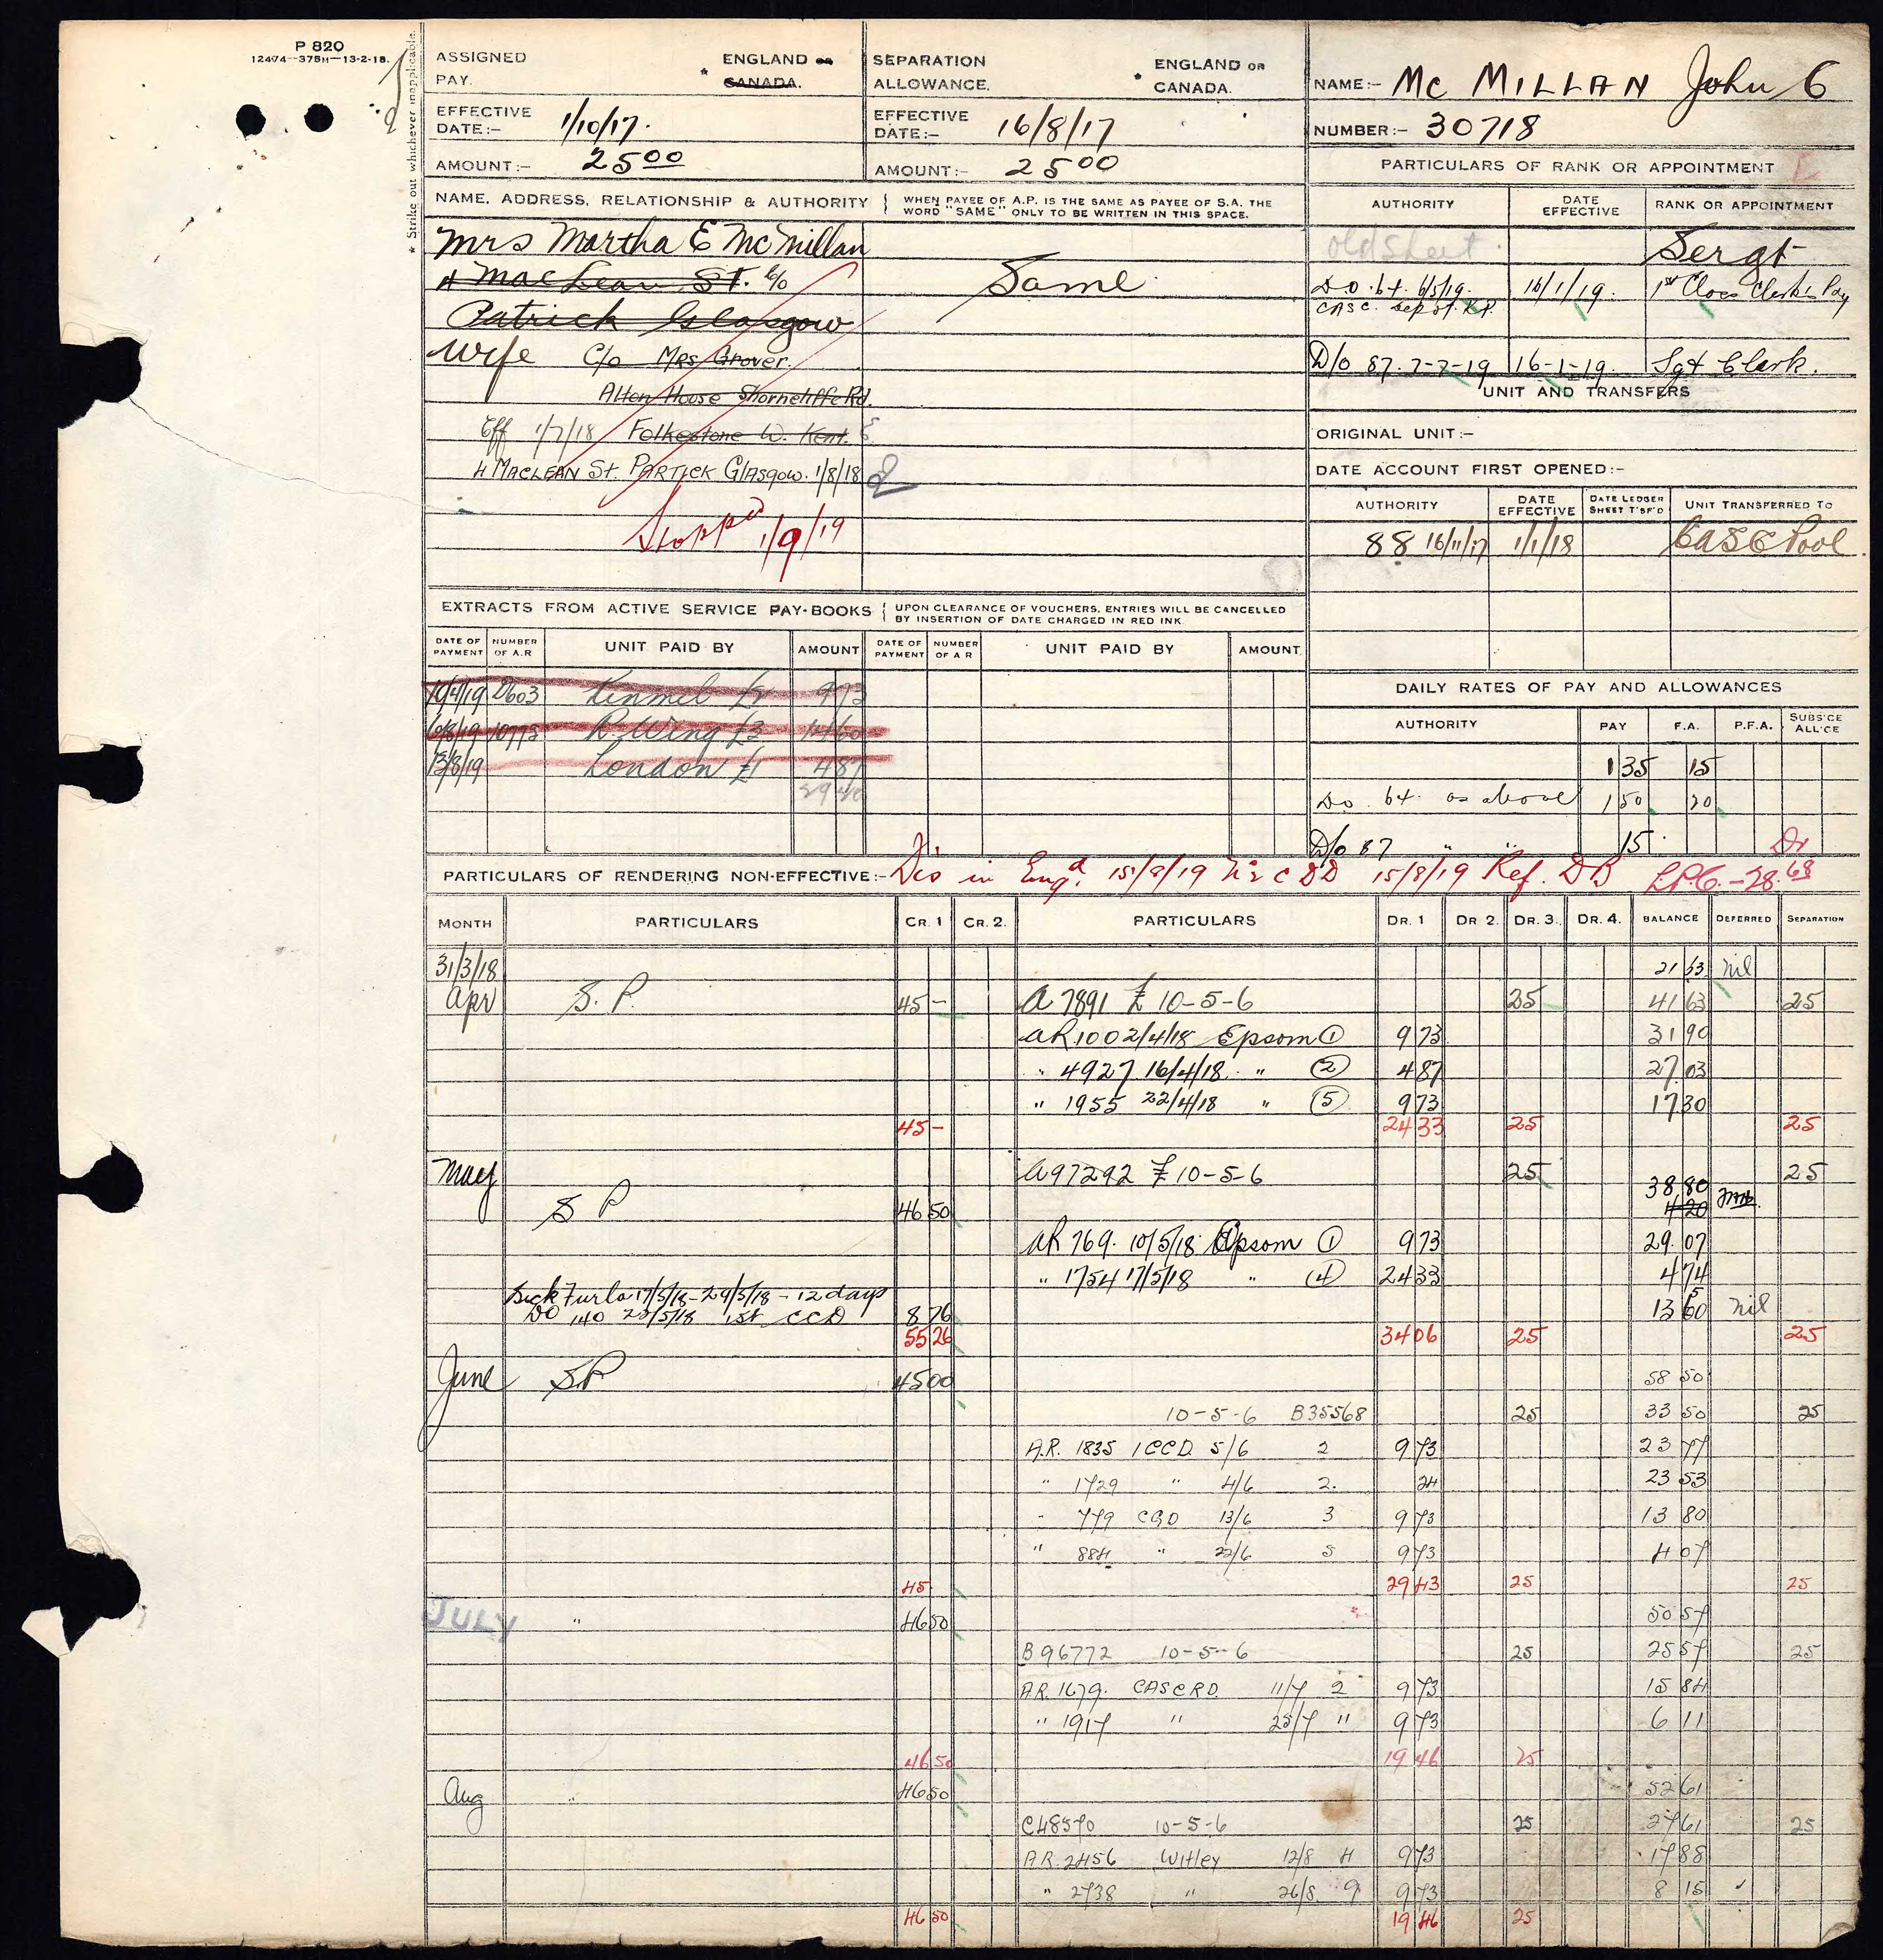 P 820
12474--375M--13-2-18.
* Strike out whichever inapplicable.
ASSIGNED PAY. * ENGLAND OR CANADA.
EFFECTIVE DATE:- 1/10/17.
AMOUNT:- 25 00
SEPARATION ALLOWANCE. * ENGLAND OR CANADA.
EFFECTIVE DATE:- 16/8/17
AMOUNT:- 25 00
NAME:- Mc MILLAN John C
NUMBER:- 30718
PARTICULARS OF RANK OR APPOINTMENT
AUTHORITY DATE EFFECTIVE RANK OR APPOINTMENT
old sheet Sergt
DO. 64. 6/3/19. 16/1/19. 1st Class Clerks Pay
CASC. Depot. R.P.
D/o 87. 7-7-19 16-1-19. Sgt Clerk.
NAME, ADDRESS, RELATIONSHIP & AUTHORITY { WHEN PAYEE OF A.P. IS THE SAME AS PAYEE OF S.A. THE WORD "SAME" ONLY TO BE WRITTEN IN THIS SPACE.
Mrs Martha E McMillan
4 MacLean St. c/o
Patrick Glasgow
Wife C/o Mrs Grover.
Alton House Shorncliffe Rd.
Eff 1/7/18 Folkestone W. Kent.
4 MACLEAN St. PARTICK GLASGOW. 1/8/18
Stopped 1/9/19
Same
UNIT AND TRANSFERS
ORIGINAL UNIT:-
DATE ACCOUNT FIRST OPENED:-
AUTHORITY DATE EFFECTIVE DATE LEDGER SHEET T'SF'D UNIT TRANSFERRED TO
88 16/11/17 1/1/18 CASC Pool
EXTRACTS FROM ACTIVE SERVICE PAY-BOOKS { UPON CLEARANCE OF VOUCHERS, ENTRIES WILL BE CANCELLED BY INSERTION OF DATE CHARGED IN RED INK.
DATE OF PAYMENT NUMBER OF A.R UNIT PAID BY AMOUNT DATE OF PAYMENT NUMBER OF A R UNIT PAID BY AMOUNT
10/4/19 D603 Kinmel £2 9 73
10773 R. Wing £3 14 60
13/8/19 London £1 4 87
29 20
DAILY RATES OF PAY AND ALLOWANCES
AUTHORITY PAY F.A. P.F.A. SUBS'CE ALL'CE
1 35 15
Do. 64. as above 1 50 20
D/o 87 " " 15.
PARTICULARS OF RENDERING NON-EFFECTIVE:- Dis in Engd. 15/8/19 No 2 C DD 15/8/19 Ref. DB L.P.C. - Dr 28.68
MONTH PARTICULARS CR. 1 CR. 2. PARTICULARS DR. 1 DR 2. DR. 3. DR. 4. BALANCE DEFERRED SEPARATION
31/3/18 21 63 nil
Apr S. P. 45 - A 7891 £ 10-5-6 25 41 63 25
AR. 100 2/4/18 Epsom ① 9 73 31 90
" 4927 16/4/18. " ② 4 87 27 03
" 1955 22/4/18 " ⑤ 9 73 17 30
45 - 24 33 25 25
May A 97292 £ 10-5-6 25 25
S P 46 50 38 80
AR 769. 10/5/18 Epsom ① 9 73 29 07
" 1754 17/5/18 " ④ 24 33 4 74
Sick Furlo 17/5/18 - 29/5/18 - 12 days
DO 140 23/5/18 1st CCD 8 76 13 50 nil
55 26 34 06 25 25
June S.P 45 00 58 50
10-5-6 B35568 25 33 50 25
A.R. 1835 1CCD 5/6 2 9 73 23 77
" 1729 " 4/6 2. 24 23 53
" 779 CGD 13/6 3 9 73 13 80
" 884 " 22/6 5 9 73 4 07
45 29 43 25 25
JULY " 46 50 50 57
B96772 10-5-6 25 25 57 25
A.R. 1679. CASCRD. 11/7 2 9 73 15 84
" 1917 " 25/7 " 9 73 6 11
46 50 19 46 25
Aug " 46 50 52 61
C48570 10-5-6 25 27 61 25
A.R. 2456 Witley 12/8 4 9 73 17 88
" 2738 " 26/8 9 9 73 8 15
46 50 19 46 25